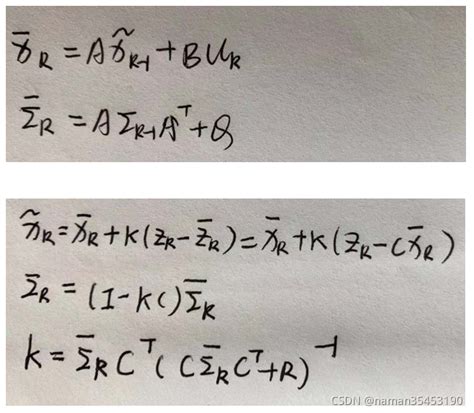 x̄_k = A x̃_{k-1} + B u_k
Σ̄_k = A Σ_{k-1} A^T + Q
x̃_k = x̄_k + K(z_k - z̄_k) = x̄_k + K(z_k - C x̄_k)
Σ_k = (1 - KC) Σ̄_k
K = Σ̄_k C^T (C Σ̄_k C^T + R)^{-1}
CSDN @naman35453190